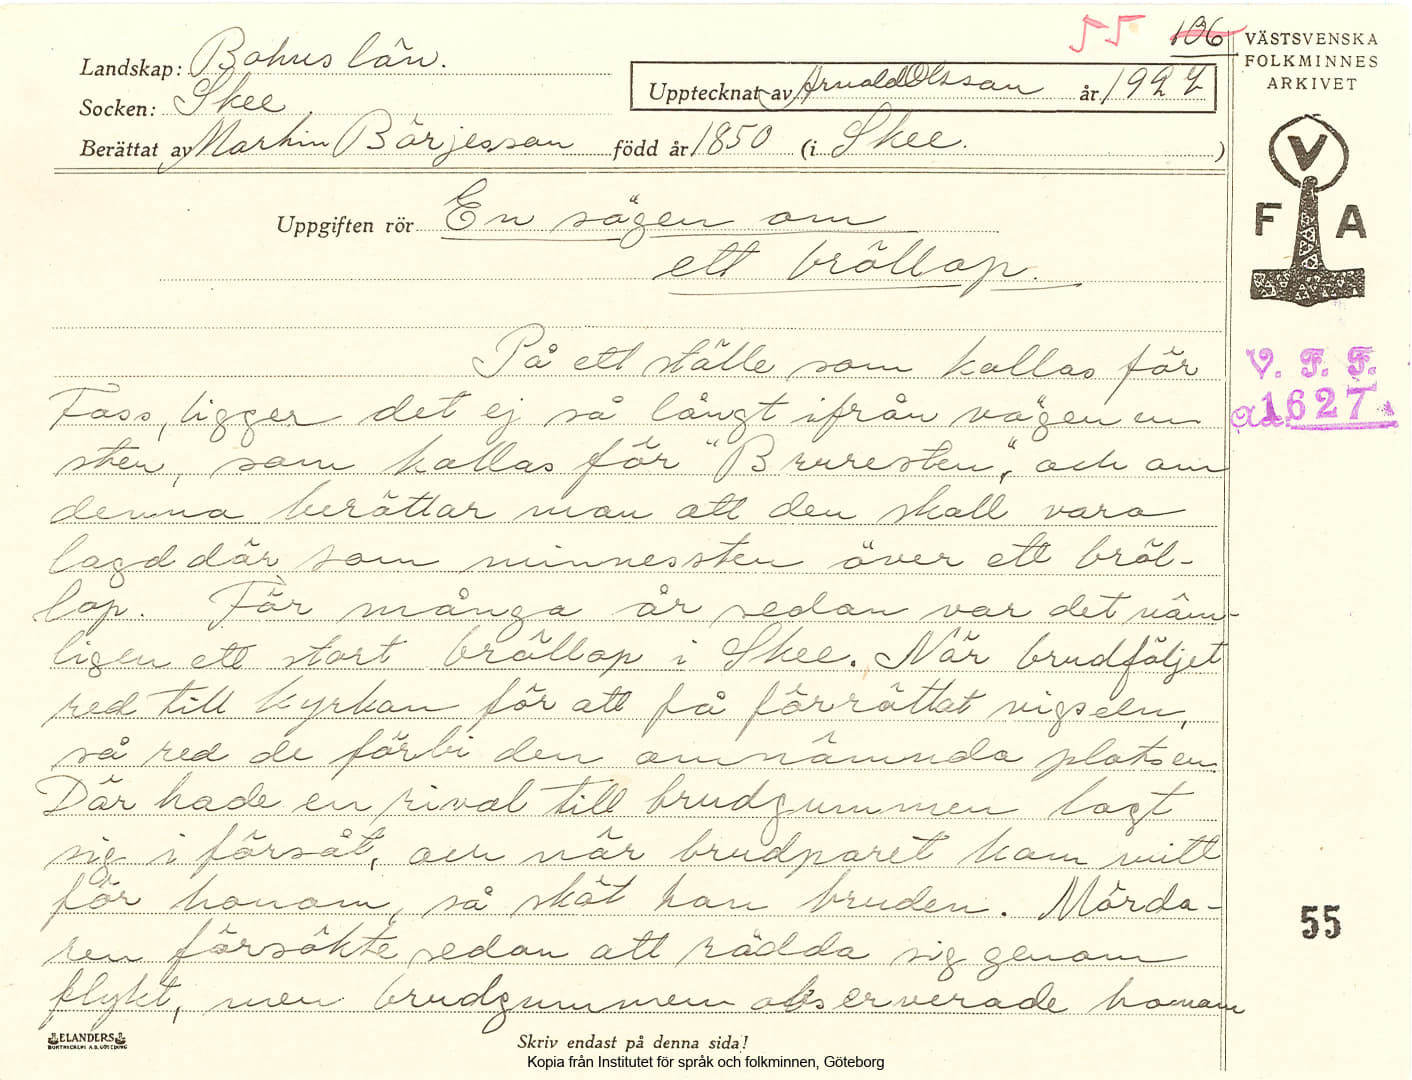 55 106
Landskap: Bohuslän.
Socken: Skee
Upptecknat av Arnold Olsson år 1927
Berättat av Martin Börjesson född år 1850 (i Skee. )
VÄSTSVENSKA
FOLKMINNES
ARKIVET
V
F A
Uppgiften rör En sägen om
ett bröllop.
V. F. F.
1627
På ett ställe som kallas för
Foss, ligger det ej så långt ifrån vägen en
sten, som kallas för "Bruresten", och om
denna berättar man att den skall vara
lagd där som minnessten över ett bröl-
lop. För många år sedan var det näm-
ligen ett stort bröllop i Skee. När brudföljet
red till kyrkan för att få förrättat vigseln,
så red de förbi den omnämnda platsen.
Där hade en rival till brudgummen lagt
sig i försåt, och när brudparet kom mitt
för honom, så sköt han bruden. Mörda-
ren försökte sedan att rädda sig genom
flykt, men brudgummen observerade honom
55
ELANDERS
BOKTRYCKERI A.B. GÖTEBORG
Skriv endast på denna sida!
Kopia från Institutet för språk och folkminnen, Göteborg